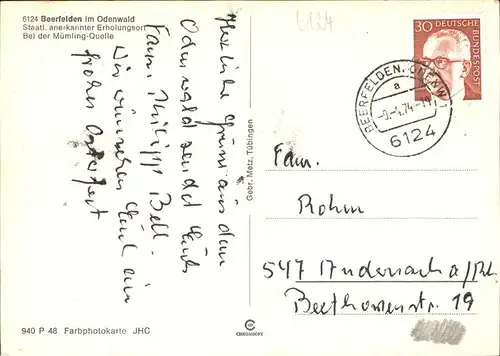 6124 Beerfelden im Odenwald
Staatl. anerkannter Erholungsort
Bei der Mümling-Quelle
6124
30 DEUTSCHE BUNDESPOST
BEERFELDEN, ODENW
a
-9.-4.74-19
6124
Herzliche Grüsse aus dem
Odenwald sendet Euch
Fam. Philipp Bell.
Wir wünschen Euch ein
frohes Osterfest
Gebr. Metz, Tübingen
Fam.
Rohm
547 Andernach a/Rh.
Beethovenstr. 19
940 P 48 Farbphotokarte JHC